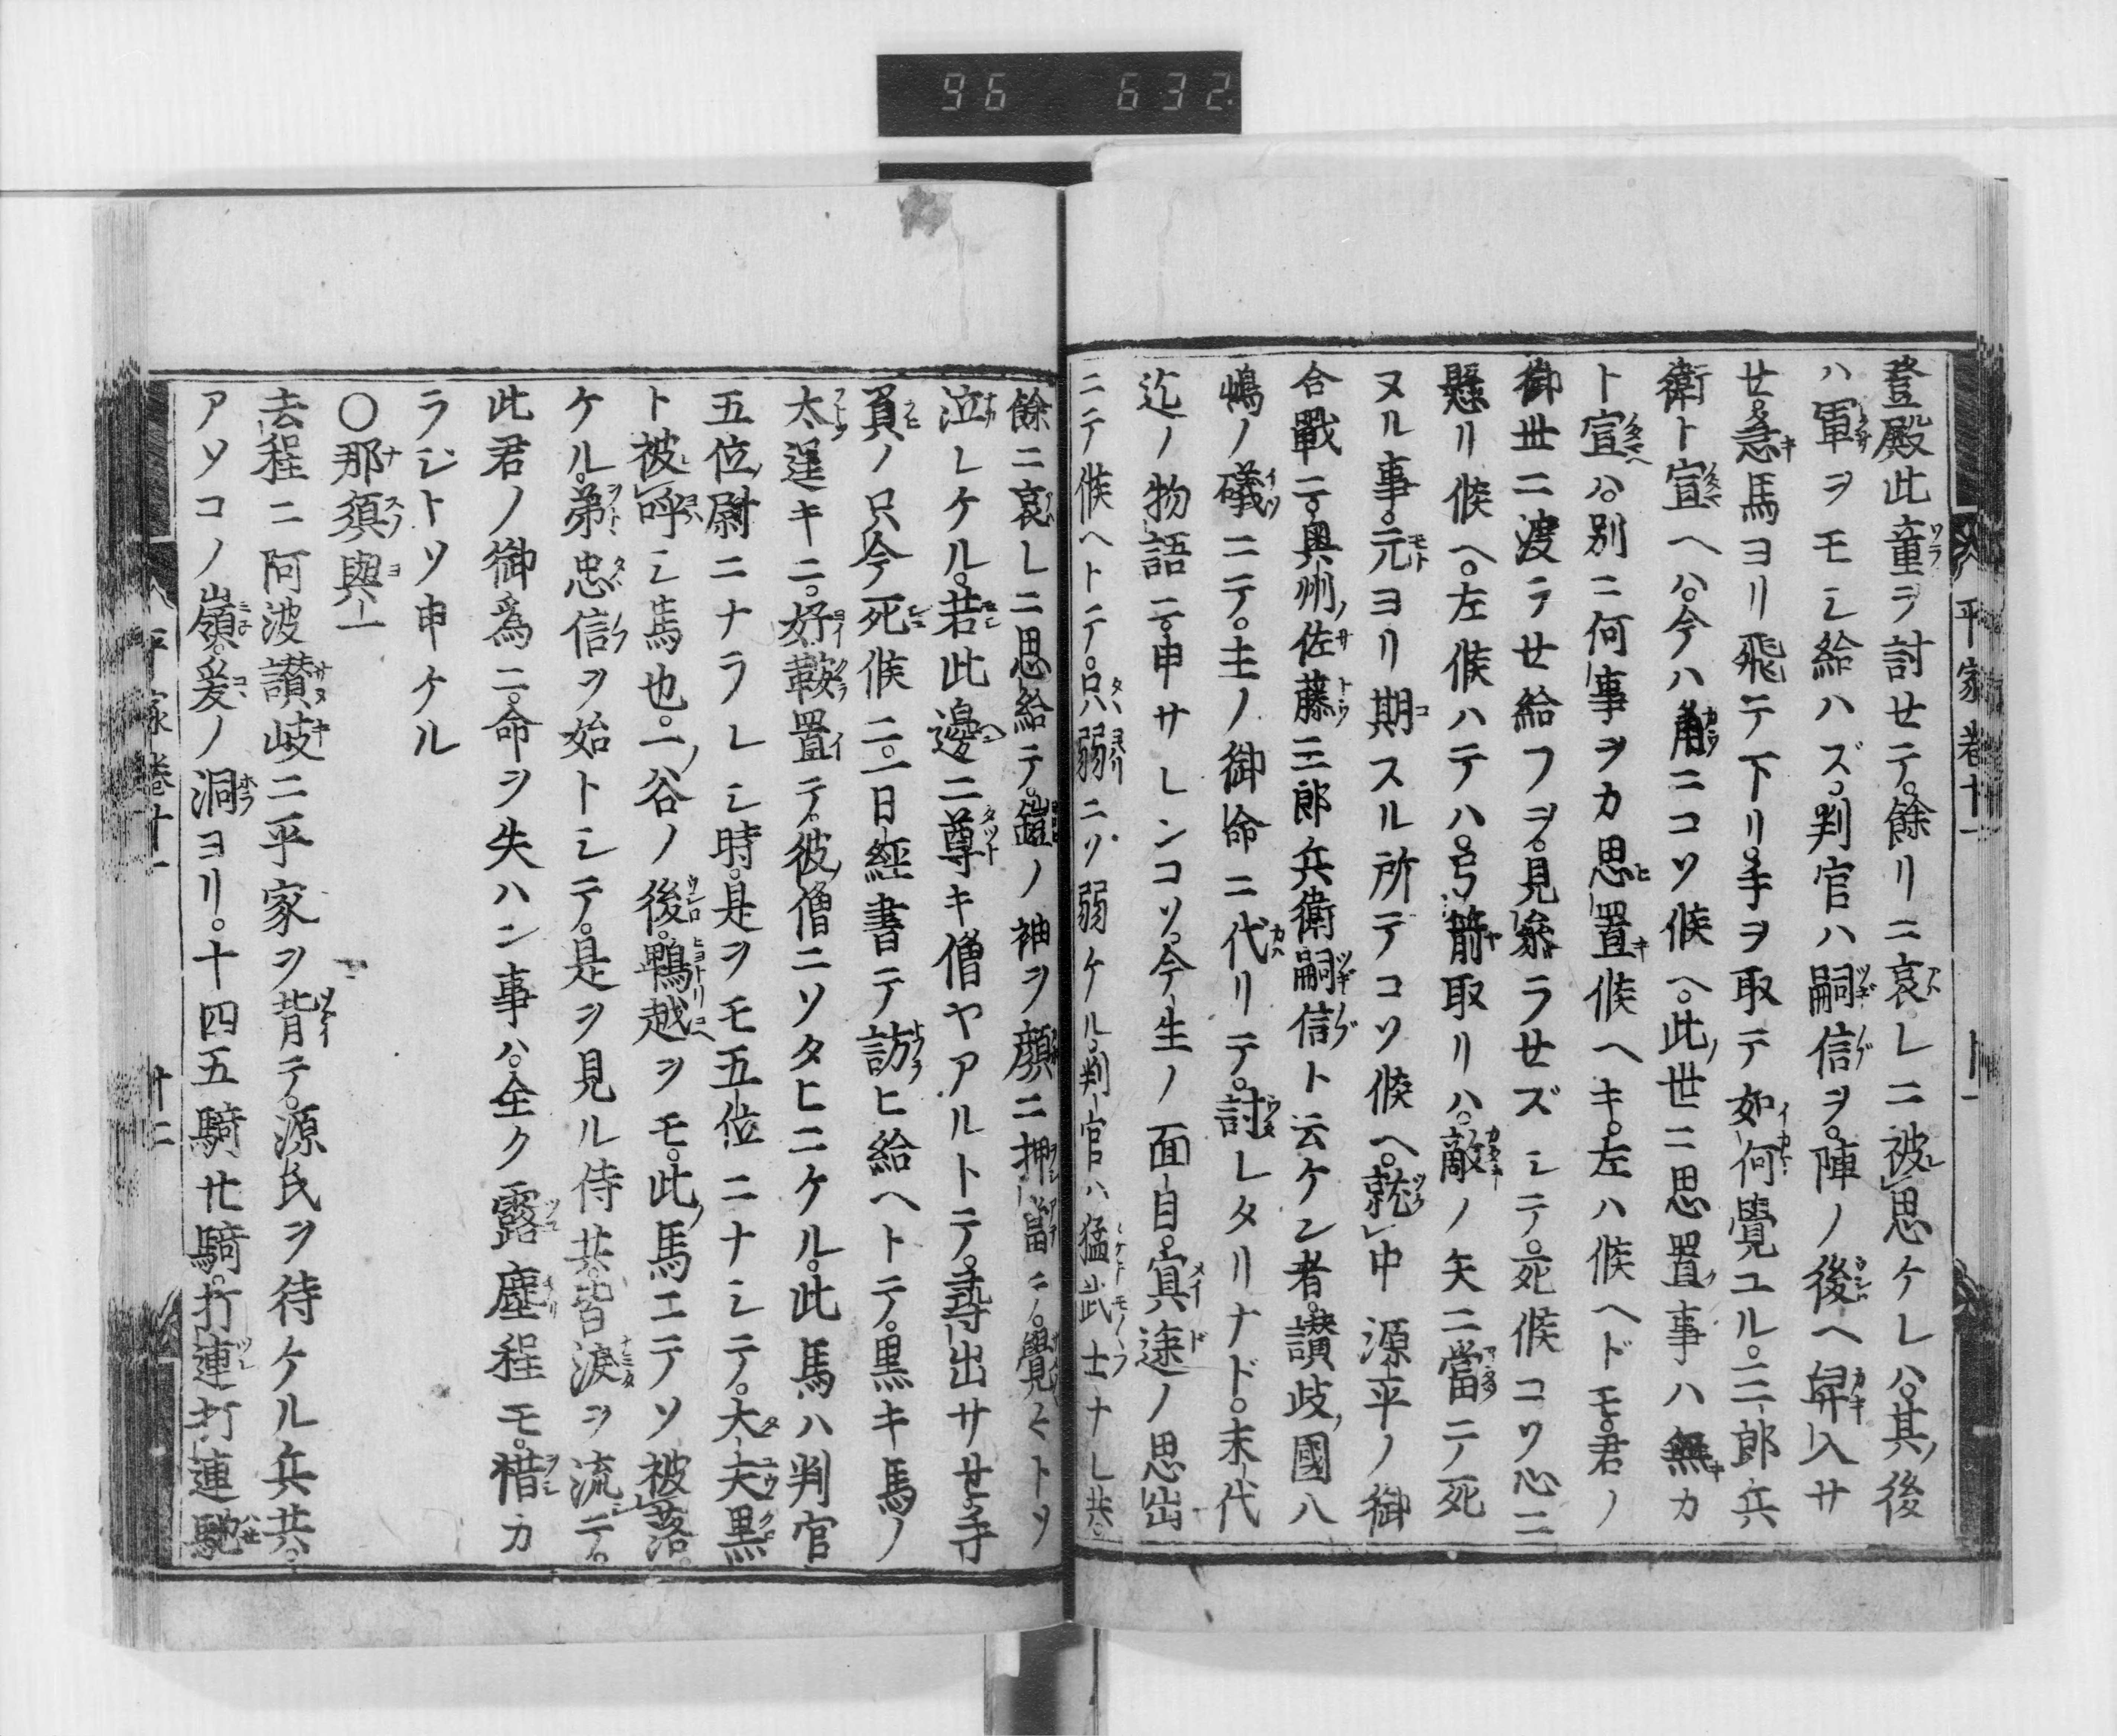 96 632
登殿此童ヲ討セテ。餘リニ哀レニ被思ケレハ。其後
ハ軍ヲモシ給ハズ。判官ハ嗣信ヲ。陣ノ後ヘ舁入サ
せ。急馬ヨリ飛テ下リ。手ヲ取テ如何覺ユル。三郎兵
衛ト宣ヘハ。今ハ角ニコソ候ヘ。此世ニ思置事ハ無カ
ト宣ハ。別ニ何事ヲカ思置候ヘキ。左ハ候ヘドモ。君ノ
御世ニ渡ラせ給フヲ。見參ラせズシテ。死候コソ心ニ
懸リ候ヘ。左候ハテハ。弓箭取リハ。敵ノ矢ニ當テ死
ヌル事。元ヨリ期スル所テコソ候ヘ。就中源平ノ御
合戰ニ。奥州佐藤三郎兵衛嗣信ト云ケン者。讃岐國八
嶋ノ礒ニテ。主ノ御命ニ代リテ。討レタリナド。末代
迄ノ物語ニ。申サレンコソ。今生ノ面目。冥途ノ思出
ニテ候ヘトテ。只弱ニソ弱ケル。判官ハ猛武士ナレ共。
平家巻十一
餘ニ哀レニ思給テ。鎧ノ袖ヲ顔ニ押當テ。覺〻トソ
泣レケル。若此邊ニ尊キ僧ヤアルトテ。尋出サせ。手
負ノ只今死候ニ。一日經書テ訪ヒ給ヘトテ。黒キ馬ノ
太逞キニ。好鞍置テ。彼僧ニソタヒニケル。此馬ハ判官
五位尉ニナラレシ時。是ヲモ五位ニナシテ。大夫黒
ト被呼シ馬也。一谷ノ後。鵯越ヲモ。此馬ニテソ被落
ケル。弟忠信ヲ始トシテ。是ヲ見ル侍共。皆涙ヲ流テ。
此君ノ御爲ニ。命ヲ失ハン事ハ。全ク露塵程モ。惜カ
ラジトソ申ケル
〇那須與一
去程ニ阿波讃岐ニ平家ヲ背テ。源氏ヲ待ケル兵共。
アソコノ嶺。爰ノ洞ヨリ。十四五騎廿騎。打連打連馳
平家巻十一 十二